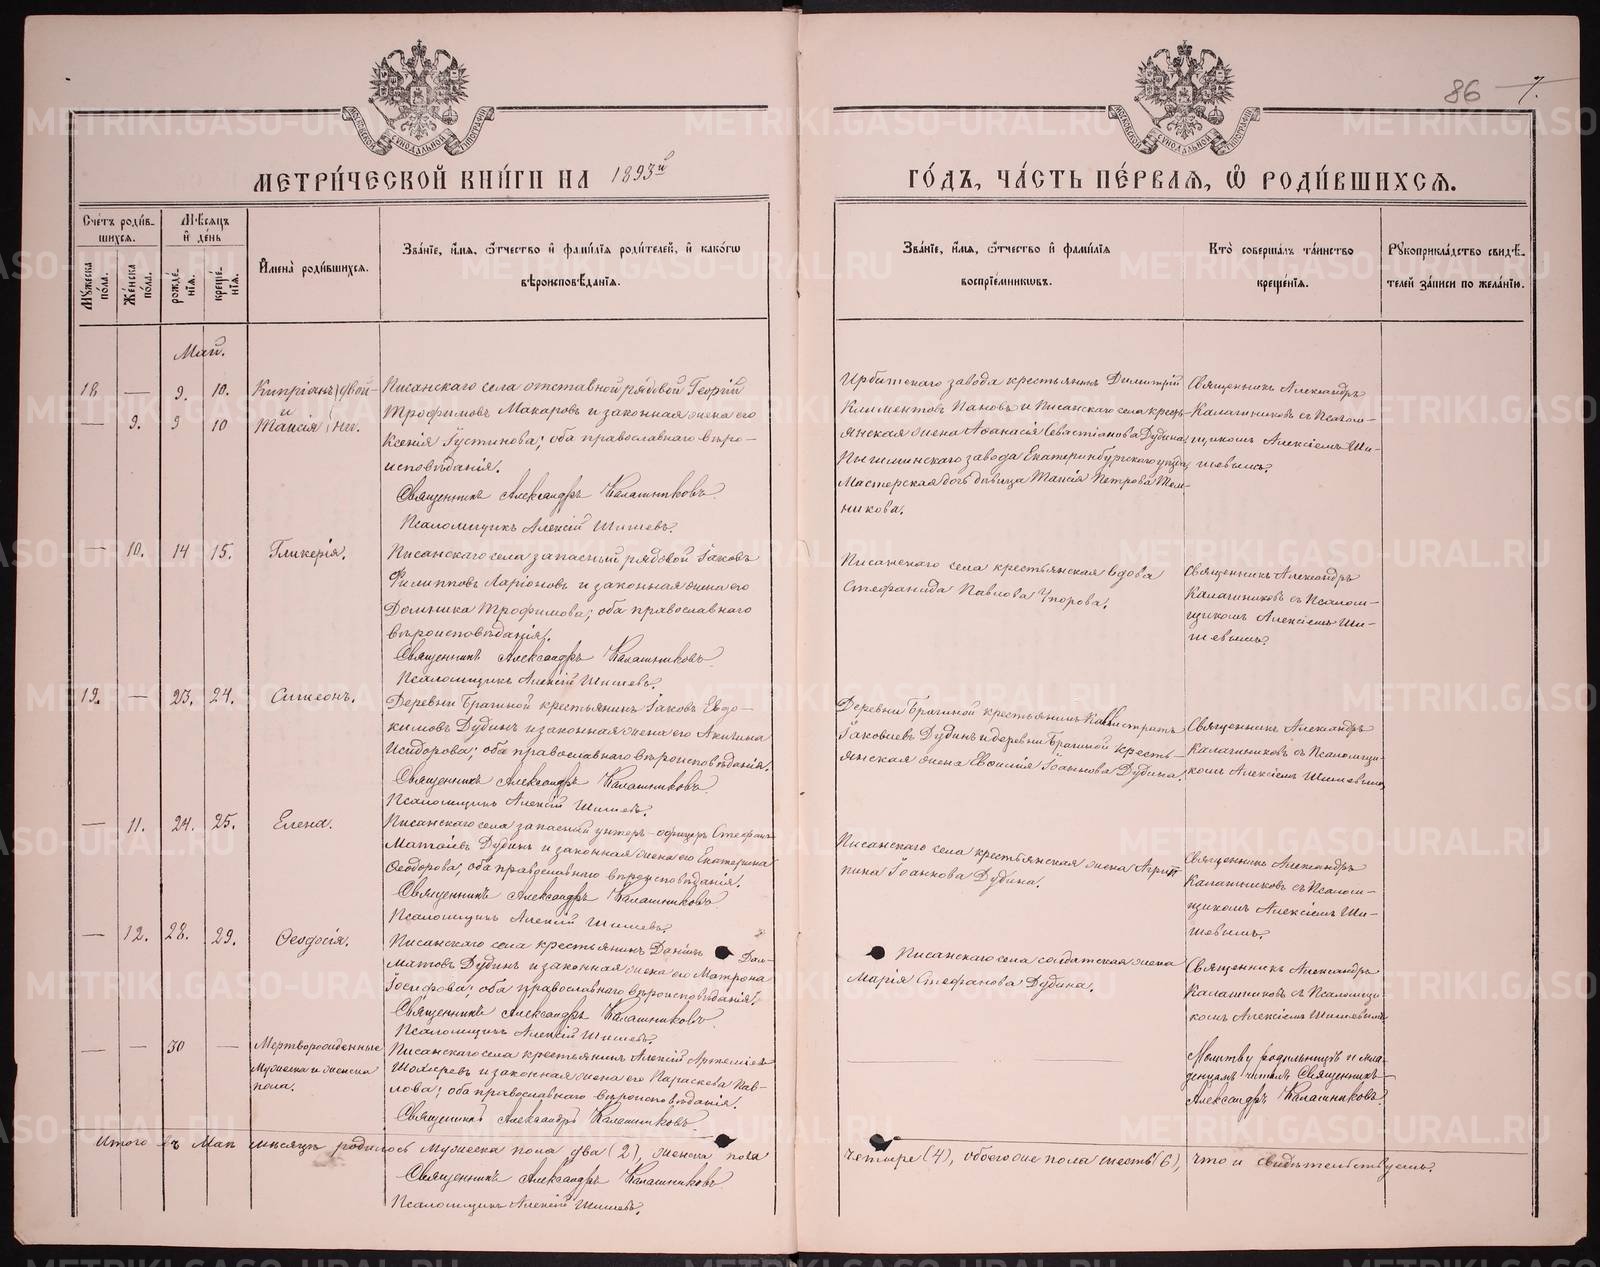 86 7.
МЕТРИ́ЧЕСКОЙ КНИ́ГИ НА 1893й ГО́ДЪ, ЧА́СТЬ ПЕ́РВАѦ, Ѡ РОДИ́ВШИХСѦ.
Сче́тъ роди́вшихсѧ.
Мѣ́сѧцъ и҆ де́нь
Мꙋ́жеска по́ла.
Же́нска по́ла.
рожде́нїѧ.
креще́нїѧ.
И҆мена̀ роди́вшихсѧ.
Зва́нїе, и҆́мѧ, ѻ҆́тчество и҆ фами́лїѧ роди́телей, и҆ како́гѡ
вѣроисповѣ́данїѧ.
Зва́нїе, и҆́мѧ, ѻ҆́тчество и҆ фами́лїѧ
воспрїе́мникѡвъ.
Кто̀ соверша́лъ та́инство
креще́нїѧ.
Рꙋкоприкла́дство свидѣ́-
телей за́писи по жела́нїю.
Май.
18 — 9. 10. Кипріанъ двой-
и
— 9. 9 10 Таисія ни.
Писанскаго села отставной рядовой Георгій
Трофимовъ Макаровъ и законная жена его
Ксенія Іустинова; оба православнаго вѣро-
исповѣданія.
Священникъ Александръ Калашниковъ.
Псаломщикъ Алексій Шишевъ.
Ирбитскаго завода крестьянинъ Димитрій
Климентовъ Пановъ и Писанскаго села кресть-
янская жена Аѳанасія Севастіанова Дудина
Пышминскаго завода Екатеринбургскаго уѣзда
Мастерская дочь дѣвица Таисія Петрова
никова.
Священникъ Александръ
Калашниковъ съ Псалом-
щикомъ Алексіемъ Ши-
шевымъ.
— 10. 14 15. Гликерія.
Писанскаго села запасный рядовой Іаковъ
Филипповъ Ларіоновъ и законная жена его
Домника Трофимова; оба православнаго
вѣроисповѣданія.
Священникъ Александръ Калашниковъ.
Псаломщикъ Алексій Шишевъ.
Писанскаго села крестьянская вдова
Стефанида Павлова Упорова.
Священникъ Александръ
Калашниковъ съ Псалом-
щикомъ Алексіемъ Ши-
шевымъ.
19. — 23. 24. Симеонъ.
Деревни Брагиной крестьянинъ Іаковъ Евдо-
кимовъ Дудинъ и законная жена его Акилина
Исидорова; оба православнаго вѣроисповѣданія.
Священникъ Александръ Калашниковъ.
Псаломщикъ Алексій Шишевъ.
Деревни Брагиной крестьянинъ Каллистратъ
Іаковлевъ Дудинъ и деревни Брагиной кресть-
янская жена Евѳимія Іоаннова Дудина.
Священникъ Александръ
Калашниковъ съ Псаломщи-
комъ Алексіемъ Шишевымъ
— 11. 24. 25. Елена.
Писанскаго села запасный унтеръ-офицеръ Стефанъ
Матѳіевъ Дудинъ и законная жена его Екатерина
Ѳеодорова; оба православнаго вѣроисповѣданія.
Священникъ Александръ Калашниковъ.
Псаломщикъ Алексій Шишевъ.
Писанскаго села крестьянская жена Агрип-
пина Іоаннова Дудина.
Священникъ Александръ
Калашниковъ съ Псалом-
щикомъ Алексіемъ Ши-
шевымъ.
— 12. 28. 29. Ѳеодосія.
Писанскаго села крестьянинъ Даніилъ Дал-
матовъ Дудинъ и законная жена его Матрона
Іосифова; оба православнаго вѣроисповѣданія.
Священникъ Александръ Калашниковъ.
Псаломщикъ Алексій Шишевъ.
Писанскаго села солдатская жена
Марія Стефанова Дудина.
Священникъ Александръ
Калашниковъ съ Псаломщи-
комъ Алексіемъ Шишевымъ
— — 30 — Мертворожденные
мужеска и женска
пола.
Писанскаго села крестьянинъ Алексій Артеміевъ
и законная жена его Параскева Пав-
лова; оба православнаго вѣроисповѣданія.
Священникъ Александръ Калашниковъ.
Молитву родильницѣ и мла-
денцамъ читалъ Священникъ
Александръ Калашниковъ.
Итого въ Маѣ мѣсяцѣ родилось мужеска пола два (2), женска пола четыре (4), обоего же пола шесть (6), что и свидѣтельствуемъ.
Священникъ Александръ Калашниковъ
Псаломщикъ Алексій Шишевъ.
METRIKI.GASO-URAL.RU